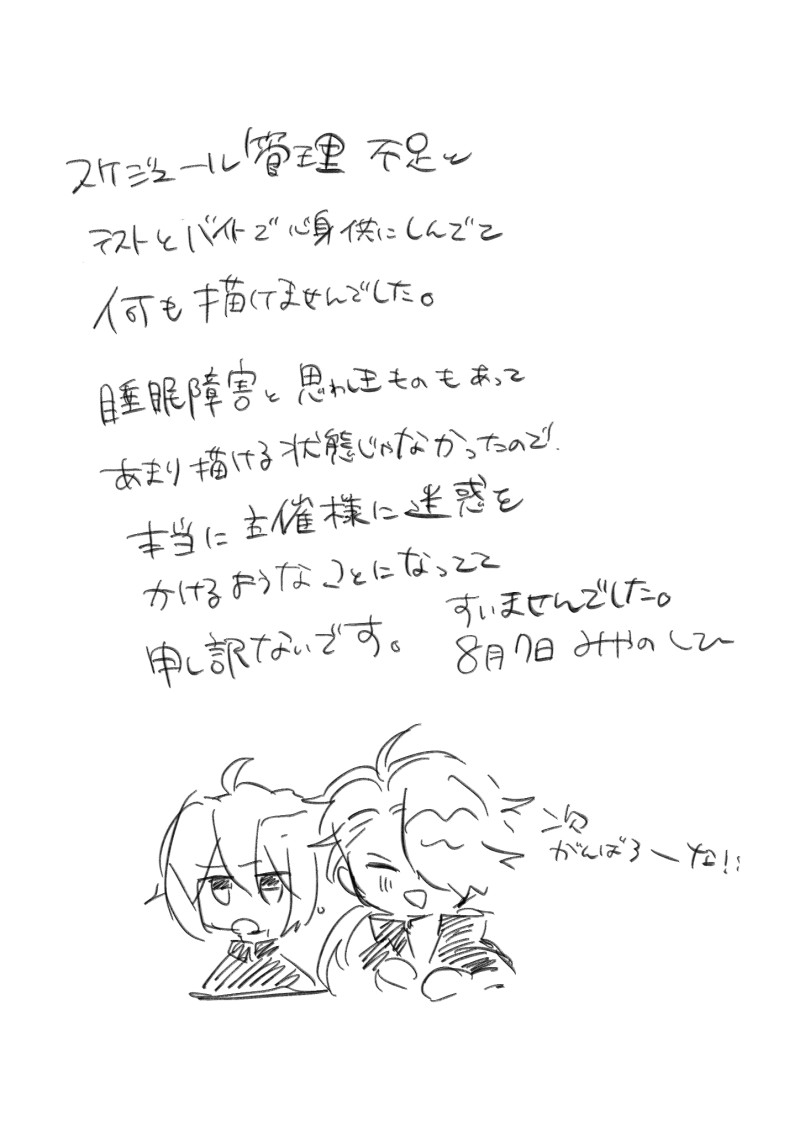 スケジュール管理不足と
テストとバイトで心身供にしんでて
何も描けてませんでした。
睡眠障害と思わしきものもあって
あまり描ける状態じゃなかったので、
本当に主催様に迷惑を
かけるようなことになってて
申し訳ないです。
すいませんでした。
8月7日 みやのしひー
次
がんばろーな!!